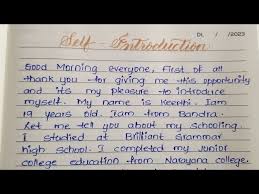 Dt. / /2023
Self - Introduction
Good Morning everyone, First of all
thank you for giving me this opportunity
and its my pleasure to introduce
myself. My name is Keerthi. Iam
19 years old. iam from Bandra.
Let me tell you about my schooling.
I studied at Brilliant Grammar
high school. I completed my Junior
college education from Narayana college.